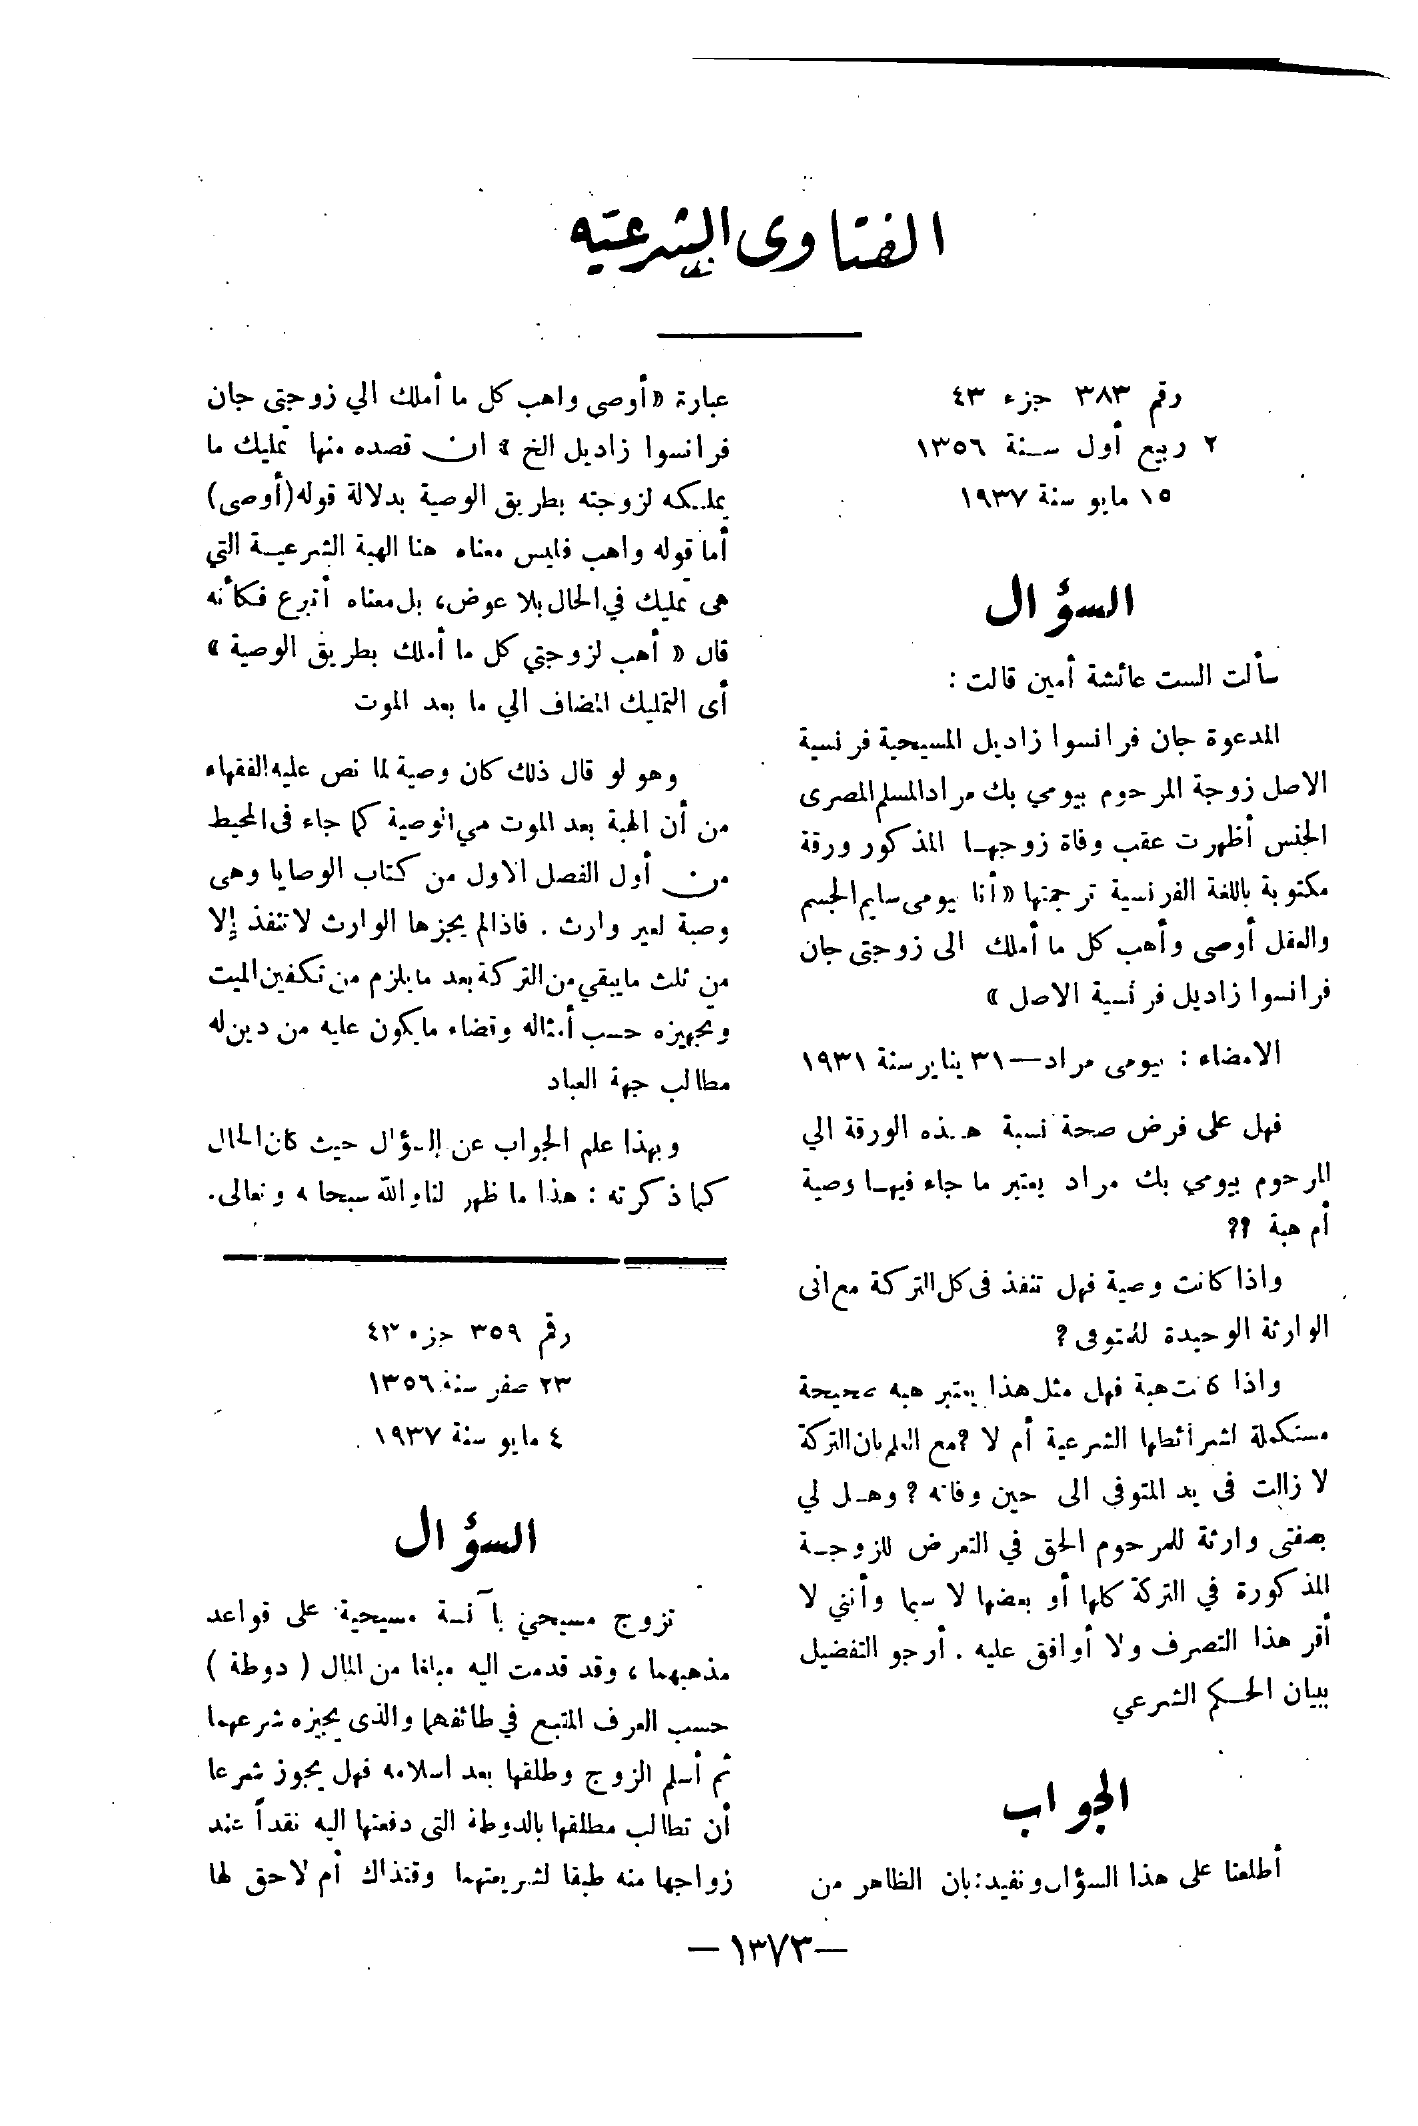 الفتاوى الشرعية
رقم ٣٨٣ جزء ٤٣
٢ ربيع أول سنة ١٣٥٦
١٥ مايو سنة ١٩٣٧
السؤال
سألت الست عائشة أمين قالت :
المدعوة جان فرانسوا زاديل المسيحية فرنسية
الاصل زوجة المرحوم بيومي بك مراد المسلم المصرى
الجنس أظهرت عقب وفاة زوجها المذكور ورقة
مكتوبة باللغة الفرنسية ترجمتها « أنا بيومى سليم الجسم
والعقل أوصى وأهب كل ما أملك الى زوجتى جان
فرانسوا زاديل فرنسية الاصل »
الامضاء : بيومى مراد — ٣١ يناير سنة ١٩٣١
فهل على فرض صحة نسبة هذه الورقة الي
المرحوم بيومي بك مراد يعتبر ما جاء فيها وصية
أم هبة ؟؟
واذا كانت وصية فهل تنفذ فى كل التركة مع انى
الوارثة الوحيدة للمتوفى ؟
واذا كانت هبة فهل مثل هذا يعتبر هبه صحيحة
مستكملة لشرائطها الشرعية أم لا ؟ مع العلم بان التركة
لا زالت فى يد المتوفى الى حين وفاته ؟ وهل لي
بصفتى وارثة للمرحوم الحق في التعرض للزوجة
المذكورة في التركة كلها أو بعضها لا سيما وأنني لا
أقر هذا التصرف ولا أوافق عليه . أرجو التفضيل
ببيان الحكم الشرعي
الجواب
أطلعنا على هذا السؤال ونفيد : بان الظاهر من
عبارة « أوصي واهب كل ما أملك الي زوجتى جان
فرانسوا زاديل الخ » ان قصده منها تمليك ما
يملكه لزوجته بطريق الوصية بدلالة قوله (أوصى)
أما قوله واهب فليس معناه هنا الهبة الشرعية التي
هى تمليك في الحال بلا عوض ، بل معناه أتبرع فكأنه
قال « أهب لزوجتي كل ما أملك بطريق الوصية »
أى التمليك المضاف الي ما بعد الموت
وهو لو قال ذلك كان وصية لما نص عليه الفقهاء
من أن الهبة بعد الموت هي الوصية كما جاء فى المحيط
من أول الفصل الاول من كتاب الوصايا وهى
وصية لغير وارث . فاذا لم يجزها الوارث لا تنفذ إلا
من ثلث ما يبقي من التركة بعد ما يلزم من تكفين الميت
وتجهيزه حسب أمثاله وقضاء ما يكون عليه من دين له
مطالب جهة العباد
وبهذا علم الجواب عن السؤال حيث كان الحال
كما ذكرته : هذا ما ظهر لنا والله سبحانه وتعالى .
رقم ٣٥٩ جزء ٤٣
٢٣ صفر سنة ١٣٥٦
٤ مايو سنة ١٩٣٧
السؤال
تزوج مسيحي بآنسة مسيحية على قواعد
مذهبهما ، وقد قدمت اليه مبلغا من المال ( دوطة )
حسب العرف المتبع في طائفهما والذى يجيزه شرعهما
ثم أسلم الزوج وطلقها بعد اسلامه فهل يجوز شرعا
أن تطالب مطلقها بالدوطة التى دفعتها اليه نقداً عند
زواجها منه طبقا لشريعتهما وقتذاك أم لا حق لها
— ١٣٧٣ —